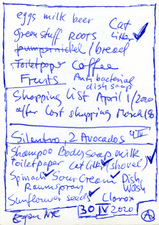 eggs milk beer Cat
green stuff Roots litter
pumpernickel / bread
Toiletpaper Coffee
Fruits Anti bacterial
dish soap
Shopping List April 1/2020
after last shopping March 18
Silantro, 2 Avocados 4/IV
Shampoo Body soap milk
Toiletpaper Cat litter/shovel
Spinach Sour Cream Dish
Raumspray Wash
Sunflower seeds Clorox
30 IV 2020